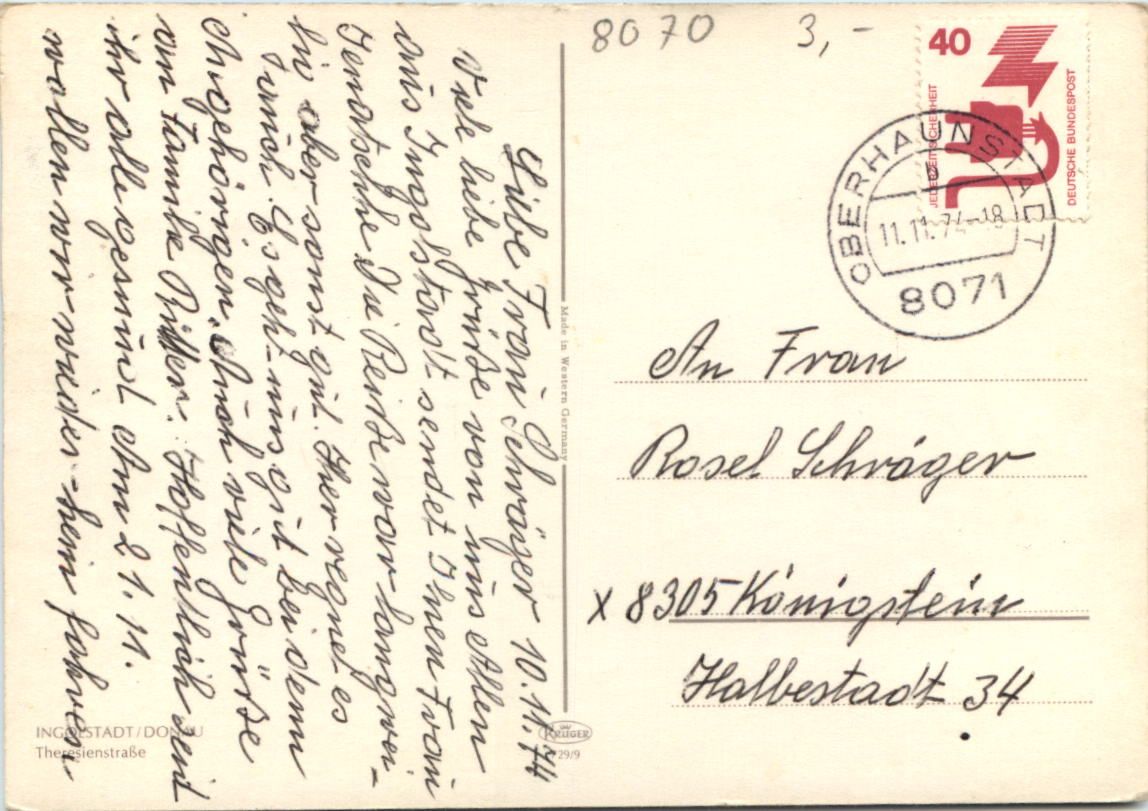 8070
3,-
40
JEDERZEIT SICHERHEIT
DEUTSCHE BUNDESPOST
OBERHAUNSTADT
b
11.11.74-18
8071
Liebe Frau Schräger 10.11.74
Viele liebe Grüße von uns Allen
aus Ingolstadt sendet Ihnen Frau
Jenatschke Die Reise war langwei-
lig aber sonst gut. Hier regnet es
auch. Es geht uns gut bei den
Angehörigen. Auch viele Grüße
an Familie Hoffentlich seit
ihr alle gesund Am 21.11.
wollen wir wieder heim fahren.
An Frau
Rosel Schräger
x 8305 Königstein
Halbestadt 34
Made in Western Germany
INGOLSTADT/DONAU
Theresienstraße
KRÜGER
29/9